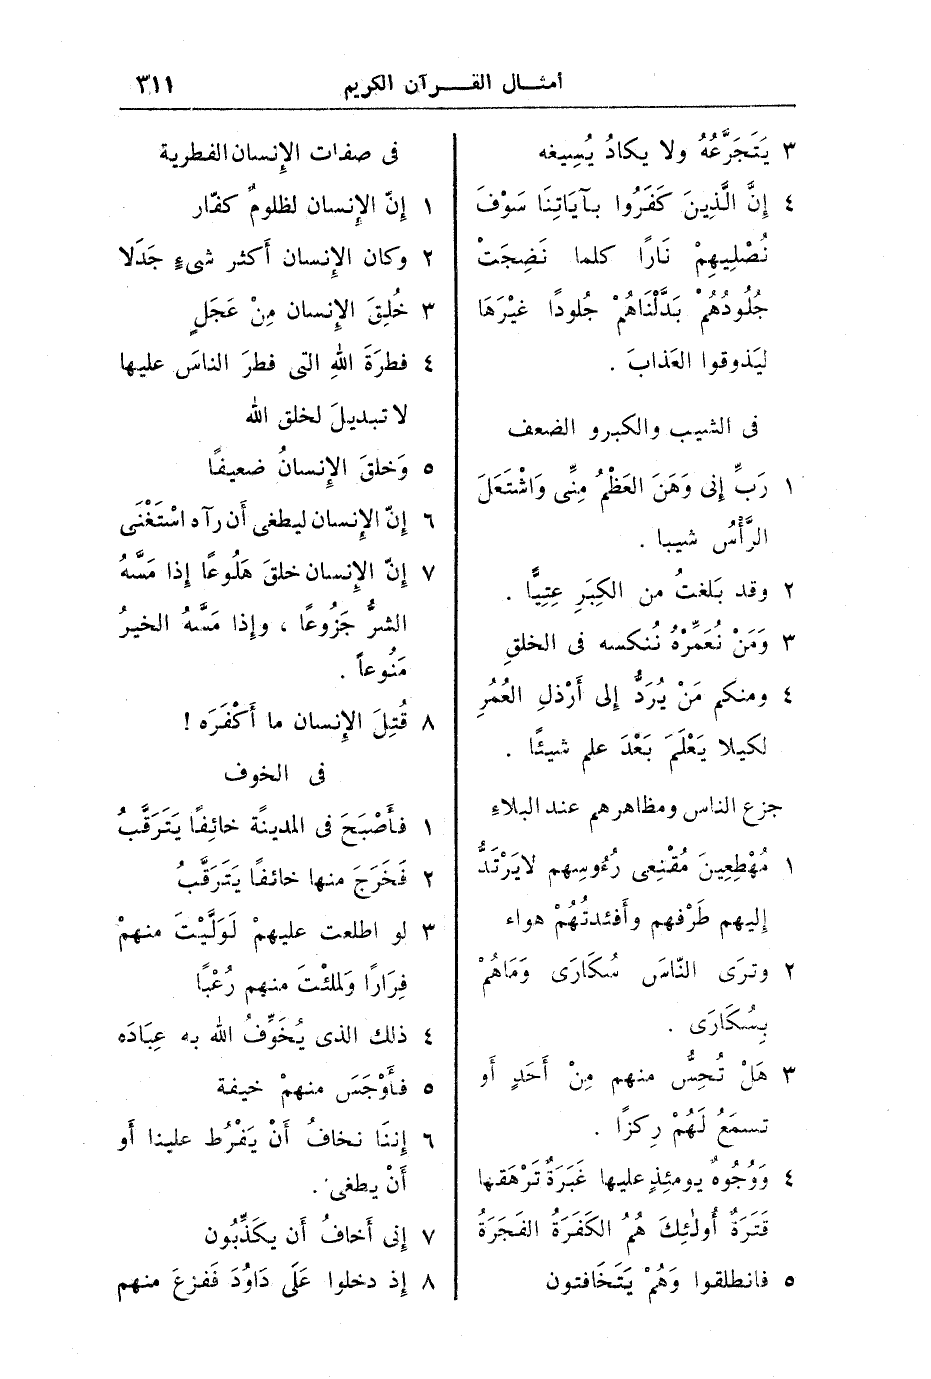 أمثال القرآن الكريم ٣١١
٣ يَتَجَرَّعُهُ ولا يكادُ يُسِيغه
٤ إِنَّ الَّذِينَ كَفَرُوا بِآيَاتِنَا سَوْفَ
نُصْلِيهِمْ نَارًا كلما نَضِجَتْ
جُلُودُهُمْ بَدَّلْنَاهُمْ جُلودًا غيْرَهَا
ليَذوقوا العَذابَ .
فى الشيب والكبرو الضعف
١ رَبِّ إنى وَهَنَ العَظْمُ مِنِّى وَاشْتَعَلَ
الرَّأْسُ شيبا .
٢ وقد بَلغتُ من الكِبَرِ عِتِيًّا .
٣ وَمَنْ نُعَمِّرْهُ نُنكسه فى الخلقِ
٤ ومنكم مَنْ يُرَدُّ إلى أَرْذلِ العُمُرِ
لكيلا يَعْلَمَ بَعْدَ علم شيئًا .
جزع الناس ومظاهرهم عند البلاء
١ مُهْطِعِينَ مُقْنِعى رُءُوسِهم لايَرْتَدُّ
إليهم طَرْفهم وأَفئدتُهُمْ هواء
٢ وترَى النّاسَ سُكَارَى وَمَاهُمْ
بِسُكَارَى .
٣ هَلْ تُحِسُّ منهم مِنْ أَحَدٍ أَو
تسمَعُ لَهُمْ رِكزًا .
٤ وَوُجُوهٌ يومئِذٍ عليها غَبَرَةٌ تَرْهَقها
قَتَرَةٌ أُولَٰئِكَ هُمُ الكَفَرَةُ الفَجَرَةُ
٥ فانطلقوا وَهُمْ يَتَخَافتون
فى صفات الإِنسان الفطرية
١ إِنّ الإِنسان لظلومٌ كفّار
٢ وكان الإِنسان أَكثر شىءٍ جَدَلا
٣ خُلِقَ الإِنسان مِنْ عَجَلٍ
٤ فطرَةَ اللهِ التى فطرَ الناسَ عليها
لا تبديلَ لخلق الله
٥ وَخلقَ الإِنسانُ ضعيفًا
٦ إِنّ الإِنسان ليطغى أَن رآه اسْتَغْنَى
٧ إِنّ الإِنسان خلقَ هَلُوعًا إذا مَسَّهُ
الشرُّ جَزُوعًا ، وإِذا مَسَّهُ الخيرُ
مَنُوعاً .
٨ قُتِلَ الإِنسان ما أَكْفَرَه !
فى الخوف
١ فأَصْبَحَ فى المدينَة خائِفًا يَتَرَقَّبُ
٢ فَخَرَجَ منها خائفًا يَتَرَقَّبُ
٣ لو اطلعت عليهمْ لَوَلَّيْتَ منهمْ
فِرَارًا وَلملئْتَ منهم رُعْبًا
٤ ذلك الذى يُخَوِّفُ الله به عِبَادَه
٥ فأَوْجَسَ منهمْ خيفة
٦ إِننَا نخافُ أَنْ يَفْرُط علينا أَو
أَنْ يطغى .
٧ إِنى أَخافُ أَن يكَذِّبُون
٨ إِذ دخلوا عَلَى دَاوُدَ فَفزعَ منهم